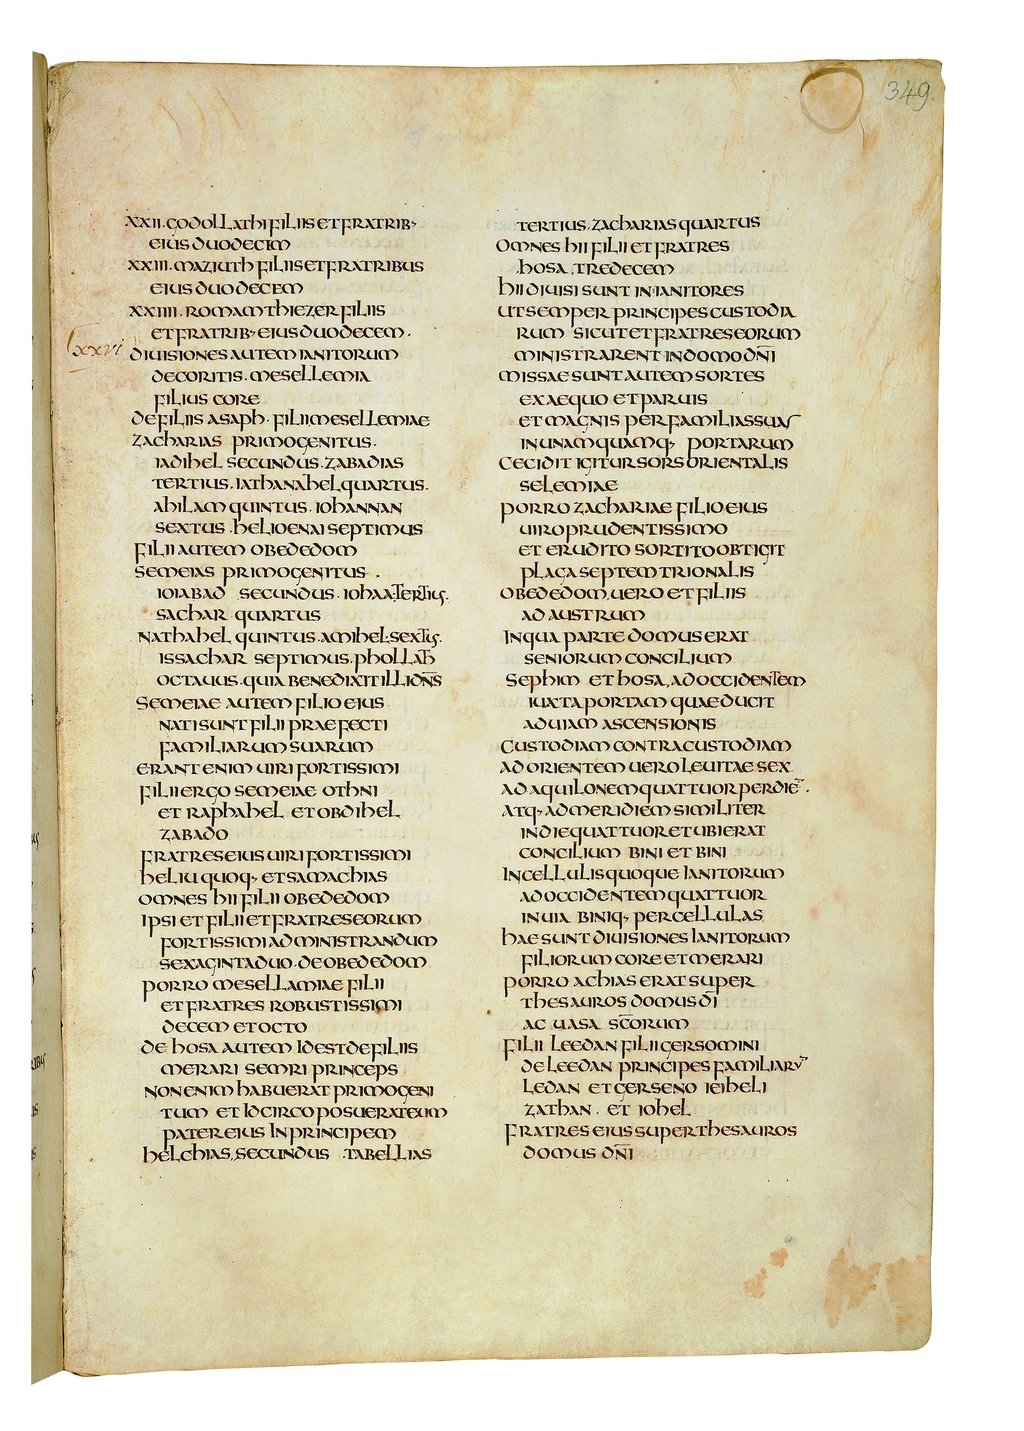 349.
XXII. GODOLLATHI FILIIS ET FRATRIB;
EIUS DUODECIM
XXIII. MAZIUTH FILIIS ET FRATRIBUS
EIUS DUODECEM
XXIIII. ROMAMTHIEZER FILIIS
ET FRATRIB; EIUS DUODECEM.
xxvi
DIUISIONES AUTEM IANITORUM
DECORITIS. MESELLEMIA
FILIUS CORE
DE FILIIS ASAPH. FILII MESELLEMIAE
ZACHARIAS PRIMOGENITUS.
IADIHEL SECUNDUS. ZABADIAS
TERTIUS. IATHANAHEL QUARTUS.
AHILAM QUINTUS. IOHANNAN
SEXTUS. HELIOENAI SEPTIMUS
FILII AUTEM OBEDEDOM
SEMEIAS PRIMOGENITUS.
IOIABAD SECUNDUS. IOHAA TERTIUS.
SACHAR QUARTUS
NATHAHEL QUINTUS. AMIHEL. SEXTUS.
ISSACHAR SEPTIMUS. PHOLLATH
OCTAUUS. QUIA BENEDIXIT ILLI DN̅S
SEMEIAE AUTEM FILIO EIUS
NATI SUNT FILII PRAEFECTI
FAMILIARUM SUARUM
ERANT ENIM UIRI FORTISSIMI
FILII ERGO SEMEIAE OTHNI
ET RAPHAHEL ET OBDIHEL
ZABADO
FRATRES EIUS UIRI FORTISSIMI
HELIU QUOQ; ET SAMACHIAS
OMNES HII FILII OBEDEDOM
IPSI ET FILII ET FRATRES EORUM
FORTISSIMI AD MINISTRANDUM
SEXAGINTA DUO. DE OBEDEDOM
PORRO MESELLAMIAE FILII
ET FRATRES ROBUSTISSIMI
DECEM ET OCTO
DE HOSA AUTEM ID EST DE FILIIS
MERARI SEMRI PRINCEPS
NON ENIM HABUERAT PRIMOGENI
TUM ET IDCIRCO POSUERAT EUM
PATER EIUS IN PRINCIPEM
HELCHIAS, SECUNDUS TABELLIAS
TERTIUS. ZACHARIAS QUARTUS
OMNES HII FILII ET FRATRES
HOSA. TREDECEM
HII DIUISI SUNT IN IANITORES
UT SEMPER PRINCIPES CUSTODIA
RUM SICUT ET FRATRES EORUM
MINISTRARENT IN DOMO DN̅I
MISSAE SUNT AUTEM SORTES
EX AEQUO ET PARUIS
ET MAGNIS PER FAMILIAS SUAS
IN UNAMQUAMQ; PORTARUM
CECIDIT IGITUR SORS ORIENTALIS
SELEMIAE
PORRO ZACHARIAE FILIO EIUS
UIRO PRUDENTISSIMO
ET ERUDITO SORTITO OBTIGIT
PLAGA SEPTEMTRIONALIS
OBEDEDOM. UERO ET FILIIS
AD AUSTRUM
IN QUA PARTE DOMUS ERAT
SENIORUM CONCILIUM
SEPHIM ET HOSA, AD OCCIDENTEM
IUXTA PORTAM QUAE DUCIT
AD UIAM ASCENSIONIS
CUSTODIAM CONTRA CUSTODIAM
AD ORIENTEM UERO LEUITAE SEX.
AD AQUILONEM QUATTUOR PER DIE̅.
ATQ; AD MERIDIEM SIMILITER
IN DIE QUATTUOR ET UBI ERAT
CONCILIUM BINI ET BINI
IN CELLULIS QUOQUE IANITORUM
AD OCCIDENTEM QUATTUOR
IN UIA BINIQ; PER CELLULAS
HAE SUNT DIUISIONES IANITORUM
FILIORUM CORE ET MERARI
PORRO ACHIAS ERAT SUPER
THESAUROS DOMUS DI̅
AC UASA SC̅ORUM
FILII LEEDAN FILII GERSOMINI
DE LEEDAN PRINCIPES FAMILIARU̅
LEDAN ET GERSENO IEIHELI
ZATHAN. ET IOHEL
FRATRES EIUS SUPER THESAUROS
DOMUS DN̅I